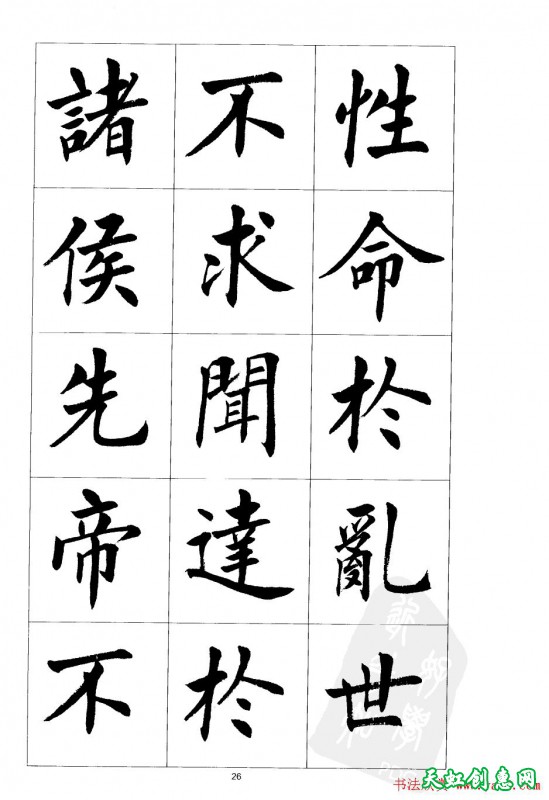 性命於亂世
不求聞達於
諸侯先帝不
26
天虹创惠网